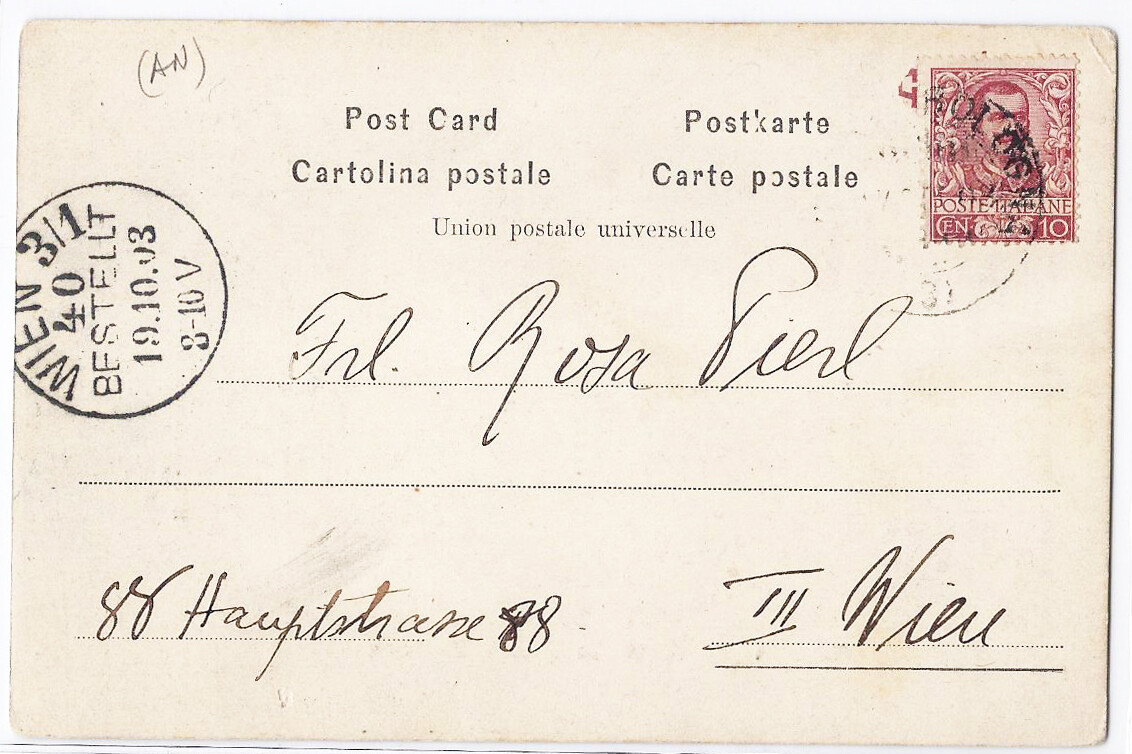 (AN)
Post Card Postkarte
Cartolina postale Carte postale
Union postale universelle
POSTE ITALIANE
CEN 10
WIEN 3/1
40
BESTELLT
19.10.03
8-10 V
Frl. Rosa Pierl
88 Hauptstrasse 88
III Wien